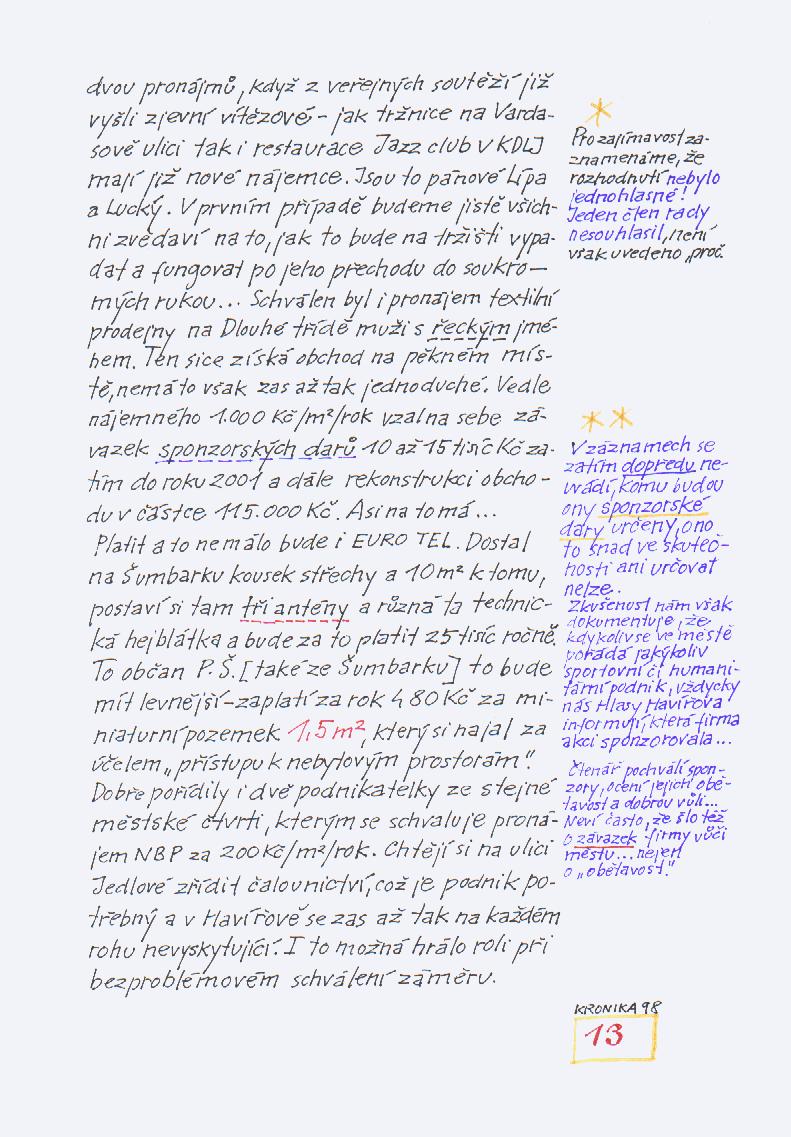 dvou pronájmů, když z veřejných soutěží již
vyšli zjevní vítězové - jak tržnice na Varda-
sově ulici tak i restaurace Jazz club v KDLJ
mají již nové nájemce. Jsou to pánové Lípa
a Lucký. V prvním případě budeme jistě všich-
ni zvědaví na to, jak to bude na tržišti vypa-
dat a fungovat po jeho přechodu do soukro-
mých rukou... Schválen byl i pronájem textilní
prodejny na Dlouhé třídě muži s řeckým jmé-
nem. Ten sice získá obchod na pěkném mís-
tě, nemá to však zas až tak jednoduché. Vedle
nájemného 1.000 Kč/m²/rok vzal na sebe zá-
vazek sponzorských darů 10 až 15 tisíc Kč za-
tím do roku 2001 a dále rekonstrukci obcho-
du v částce 115.000 Kč. Asi na to má...
Platit a to nemálo bude i EURO TEL. Dostal
na Šumbarku kousek střechy a 10 m² k tomu,
postaví si tam tři antény a různá ta technic-
ká hejblátka a bude za to platit 25 tisíc ročně.
To občan P.Š. [také ze Šumbarku] to bude
mít levnější - zaplatí za rok 480 Kč za mi-
niaturní pozemek 1,5 m², který si najal za
účelem „přístupu k nebytovým prostorám".
Dobře pořídily i dvě podnikatelky ze stejné
městské čtvrti, kterým se schvaluje proná-
jem NBP za 200 Kč/m²/rok. Chtějí si na ulici
Jedlové zřídit čalounictví, což je podnik po-
třebný a v Havířově se zas až tak na každém
rohu nevyskytující. I to možná hrálo roli při
bezproblémovém schválení záměru.
*
Pro zajímavost za-
znamenáme, že
rozhodnutí nebylo
jednohlasné!
Jeden člen rady
nesouhlasil, není
však uvedeno, proč.
* *
V záznamech se
zatím dopředu ne-
uvádí, komu budou
ony sponzorské
dary určeny, ono
to snad ve skuteč-
nosti ani určovat
nelze.
Zkušenost nám však
dokumentuje, že
kdykoliv se ve městě
pořádá jakýkoliv
sportovní či humani-
tární podnik, vždycky
nás Hlasy Havířova
informují, která firma
akci sponzorovala...
Čtenář pochválí spon-
zory, ocení jejich obě-
tavost a dobrou vůli...
Neví často, že šlo též
o závazek firmy vůči
městu... nejen
o „obětavost".
KRONIKA 98
13